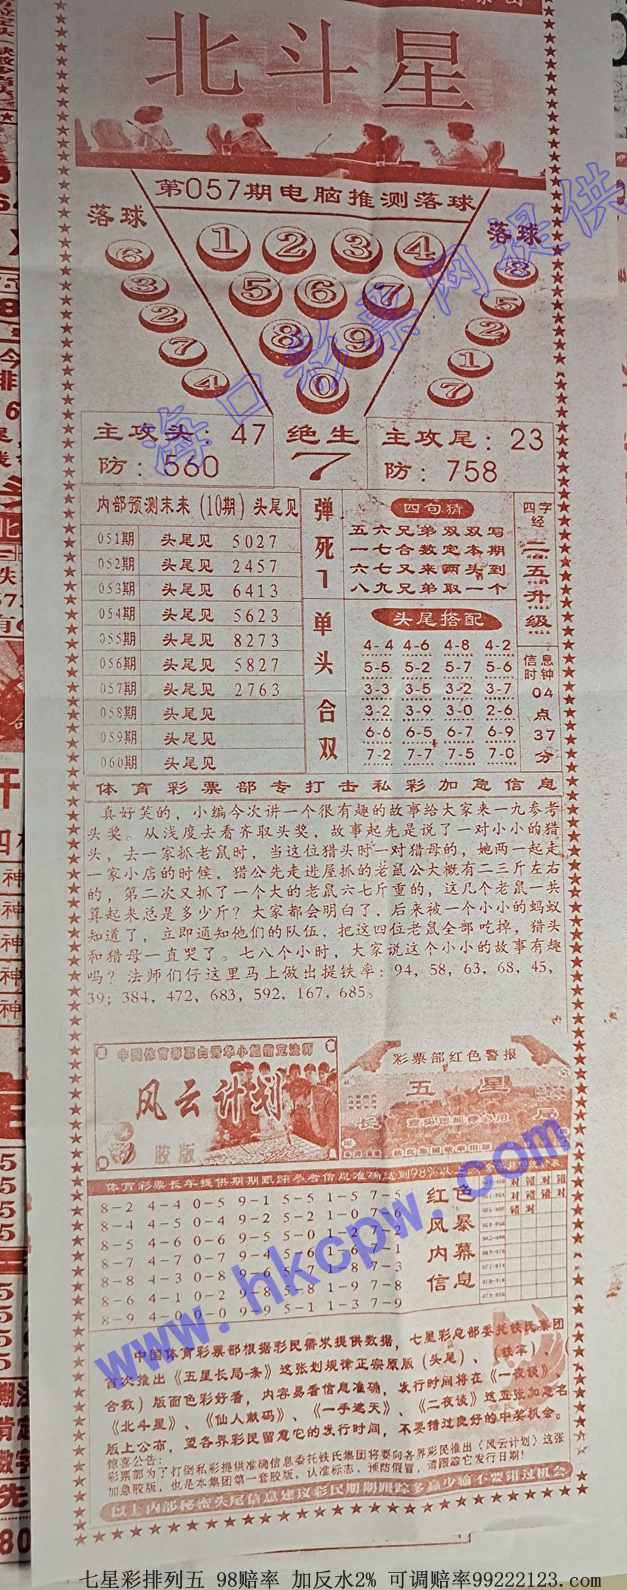 北斗星
第057期电脑推测落球
落球
6
3
2
7
4
1 2 3 4
5 6 7
8 9
0
落球
8
5
2
1
7
主攻头: 47
防: 560
绝生
7
主攻尾: 23
防: 758
内部预测末来 (10期) 头尾见
051期 头尾见 5027
052期 头尾见 2457
053期 头尾见 6413
054期 头尾见 5623
055期 头尾见 8273
056期 头尾见 5827
057期 头尾见 2763
058期 头尾见
059期 头尾见
060期 头尾见
弹死
单头
合双
四句猜
五六兄弟双双写
一七合数定本期
六七又来两头到
八九兄弟取一个
头尾搭配
4-4 4-6 4-8 4-2
5-5 5-2 5-7 5-6
3-3 3-5 3-2 3-7
3-2 3-9 3-0 2-6
6-6 6-5 6-7 6-9
7-2 7-7 7-5 7-0
四字经
二五升级
信息时钟
04
点
37
分
体育彩票部专打击私彩加急信息
真好笑的，小编今次讲一个很有趣的故事给大家来一九参考
头奖。从浅度去看齐取头奖，故事起先是说了一对小小的猎
头，去一家抓老鼠时，当这位猎头时一对猎母的，她两一起走
一家小店的时候，猎公先走进屋抓的老鼠公大概有二三斤左右
的，第二次又抓了一个大的老鼠六七斤重的，这几个老鼠一共
算起来总是多少斤？大家都会明白了，后来被一个小小的蚂蚁
知道了，立即通知他们的队伍，把这四位老鼠全部吃掉，猎头
和猎母一直哭了。七八个小时，大家说这个小小的故事有趣
吗？法师们仔这里马上做出提铁率：94，58，63，68，45，
39；384，472，683，592，167，685。
风云计划
胶版
彩票部红色警报
五星
长
局
体育彩票长年提供期期跟踪参考信息准确达到98%以上
8-2 4-4 0-5 9-1 5-5 1-5 7-5
8-4 4-5 0-4 9-2 5-2 1-0 7-6
红色
风暴
内幕
信息
中国体育彩票部根据彩民需求提供数据，七星彩总部委托铁氏集团
首次推出《五星长局-条》这张划规律正宗原版（头尾）、（铁率）
合数）版面色彩好看，内容易看信息准确，发行时间将在《一夜谈》
《北斗星》、《仙人献码》、《一手遮天》、《二夜谈》这五张加急名
版上公布，望各界彩民留意它的发行时间，不要错过良好的中奖机会。
惊喜公告：
彩票部为了打倒私彩提供准确信息委托铁氏集团将要向各界彩民推出《风云计划》这张
加急胶版，也是本集团第一套胶版，认准标志，预防假冒，请跟踪它发行日期！
以上内部秘密头尾信息建议彩民期期跟踪多赢少输不要错过机会
海口彩票网提供
www.hkcpw.com
七星彩排列五 98赔率 加反水2% 可调赔率99222123.com